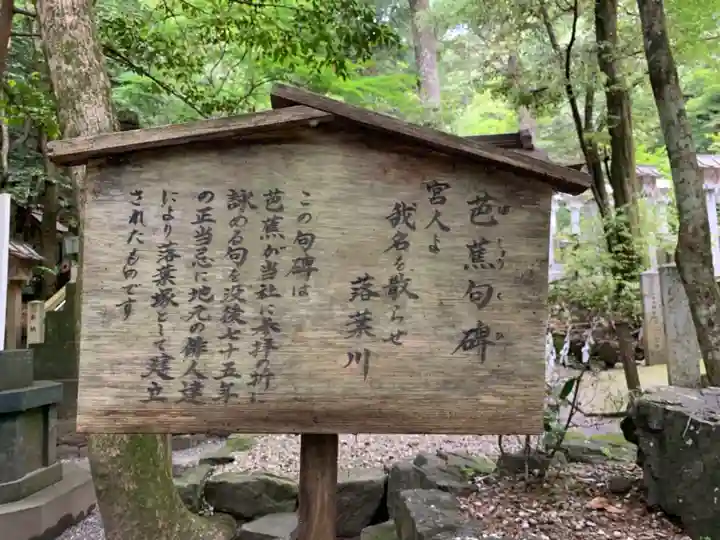 芭蕉句碑
ばしょうくひ
宮人よ
我名を散らせ
落葉川
この句碑は
芭蕉が当社に参拝の折に
詠める句を没後七十五年
の正当忌に地元の俳人達
により落葉塚として建立
されたものです